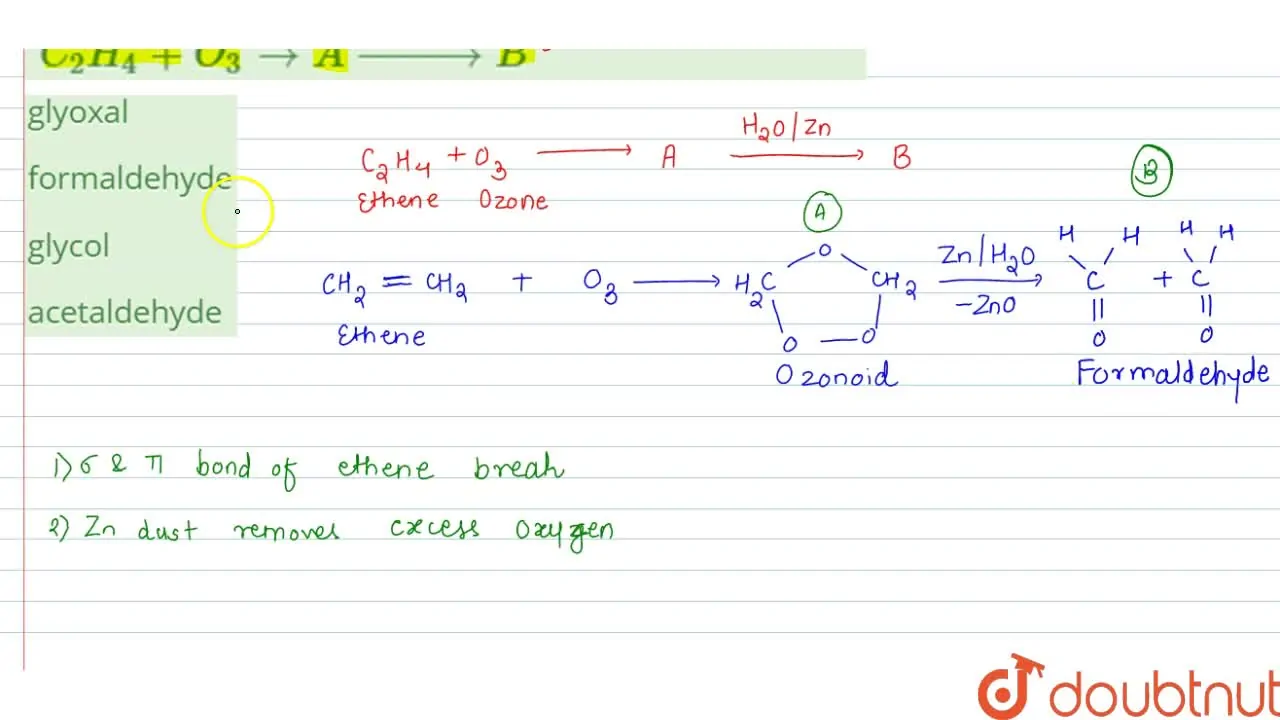 C₂H₄ + O₃ → A ⟶ B
glyoxal
formaldehyde
glycol
acetaldehyde
H₂O/Zn
C₂H₄ + O₃ ⟶ A ⟶ B
Ethene Ozone
A
B
O
H H H H
Zn/H₂O
CH₂ = CH₂ + O₃ ⟶ H₂C CH₂ ⟶ C + C
-ZnO
O — O
O O
Ethene
Ozonoid
Formaldehyde
1) σ & π bond of ethene break
2) Zn dust removes excess oxygen
doubtnut